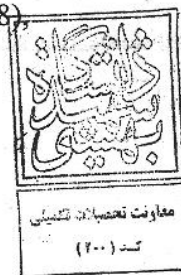 8),
دانشگاه
شهید
بهشتی
معاونت تحصیلات تکمیلی
کد (۲۰۰)